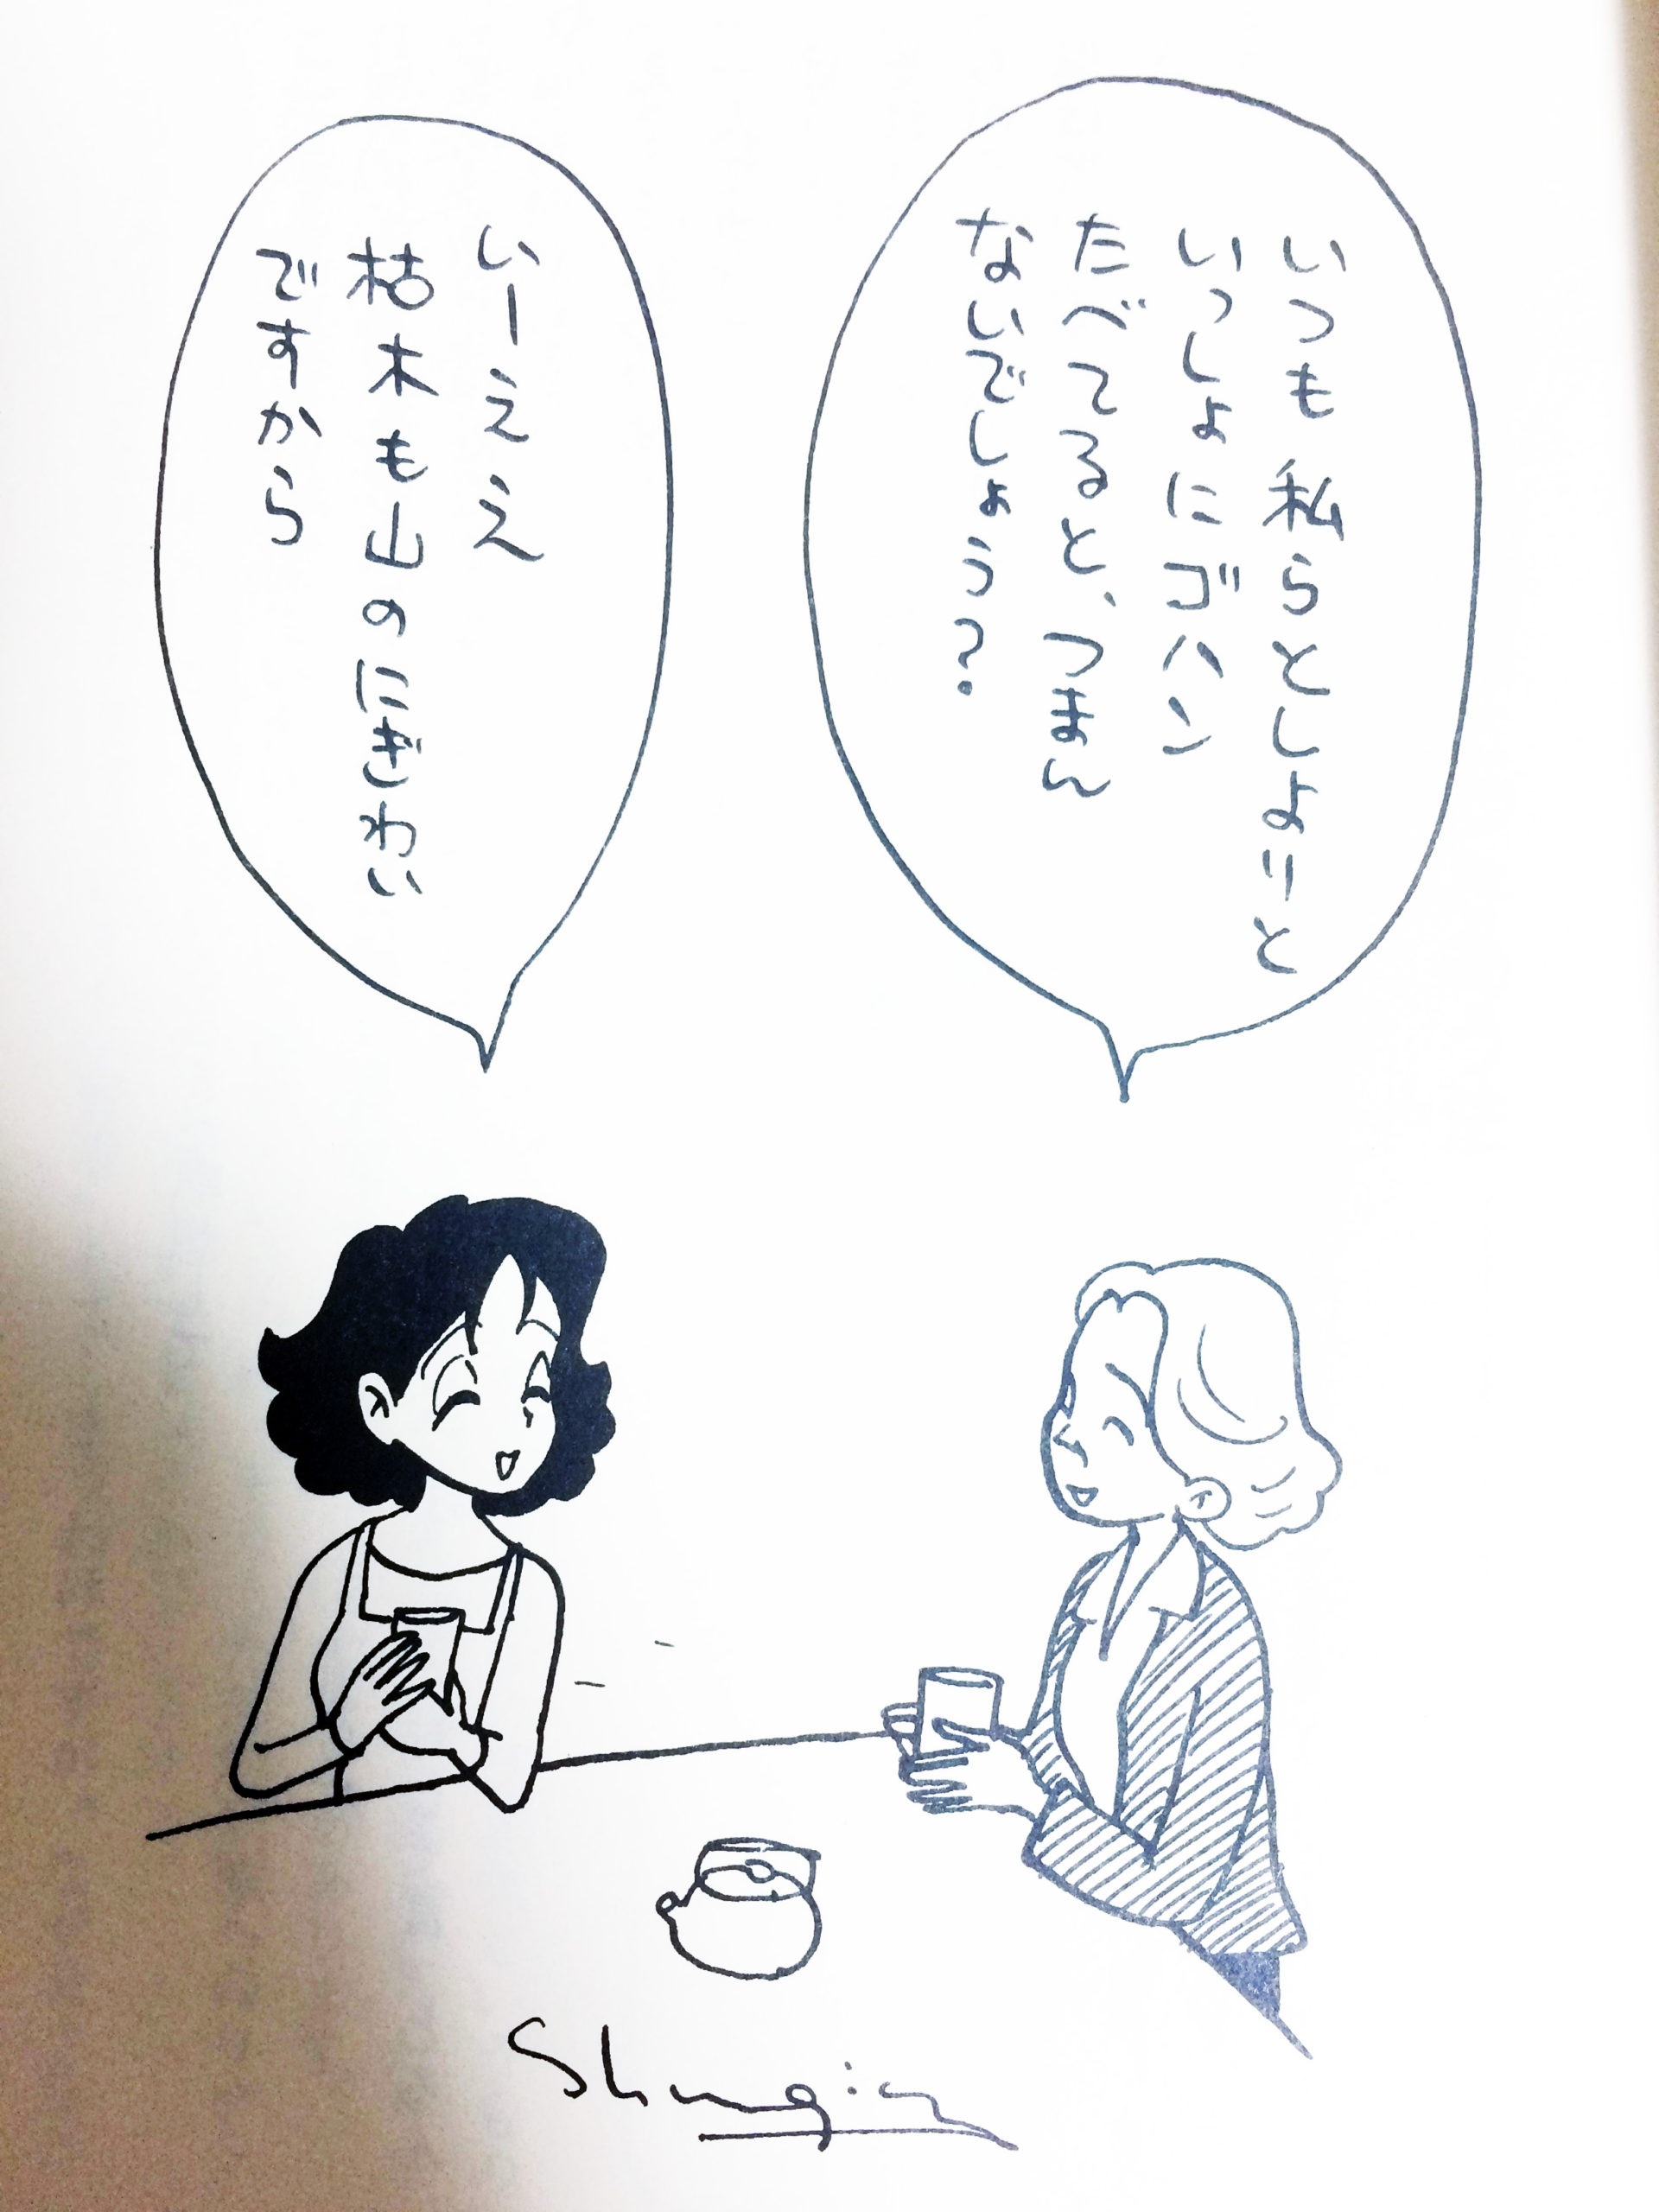 いつも私らとしよりと
いっしょにゴハン
たべてると、つまん
ないでしょう？
いーええ
枯木も山のにぎわい
ですから